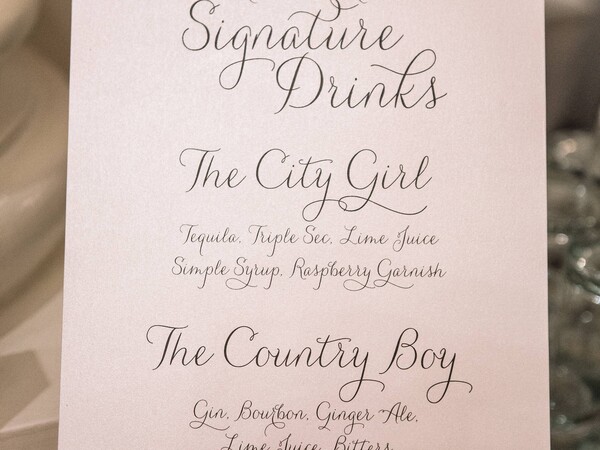 Signature
Drinks
The City Girl
Tequila, Triple Sec, Lime Juice
Simple Syrup, Raspberry Garnish
The Country Boy
Gin, Bourbon, Ginger Ale,
Lime Juice, Bitters